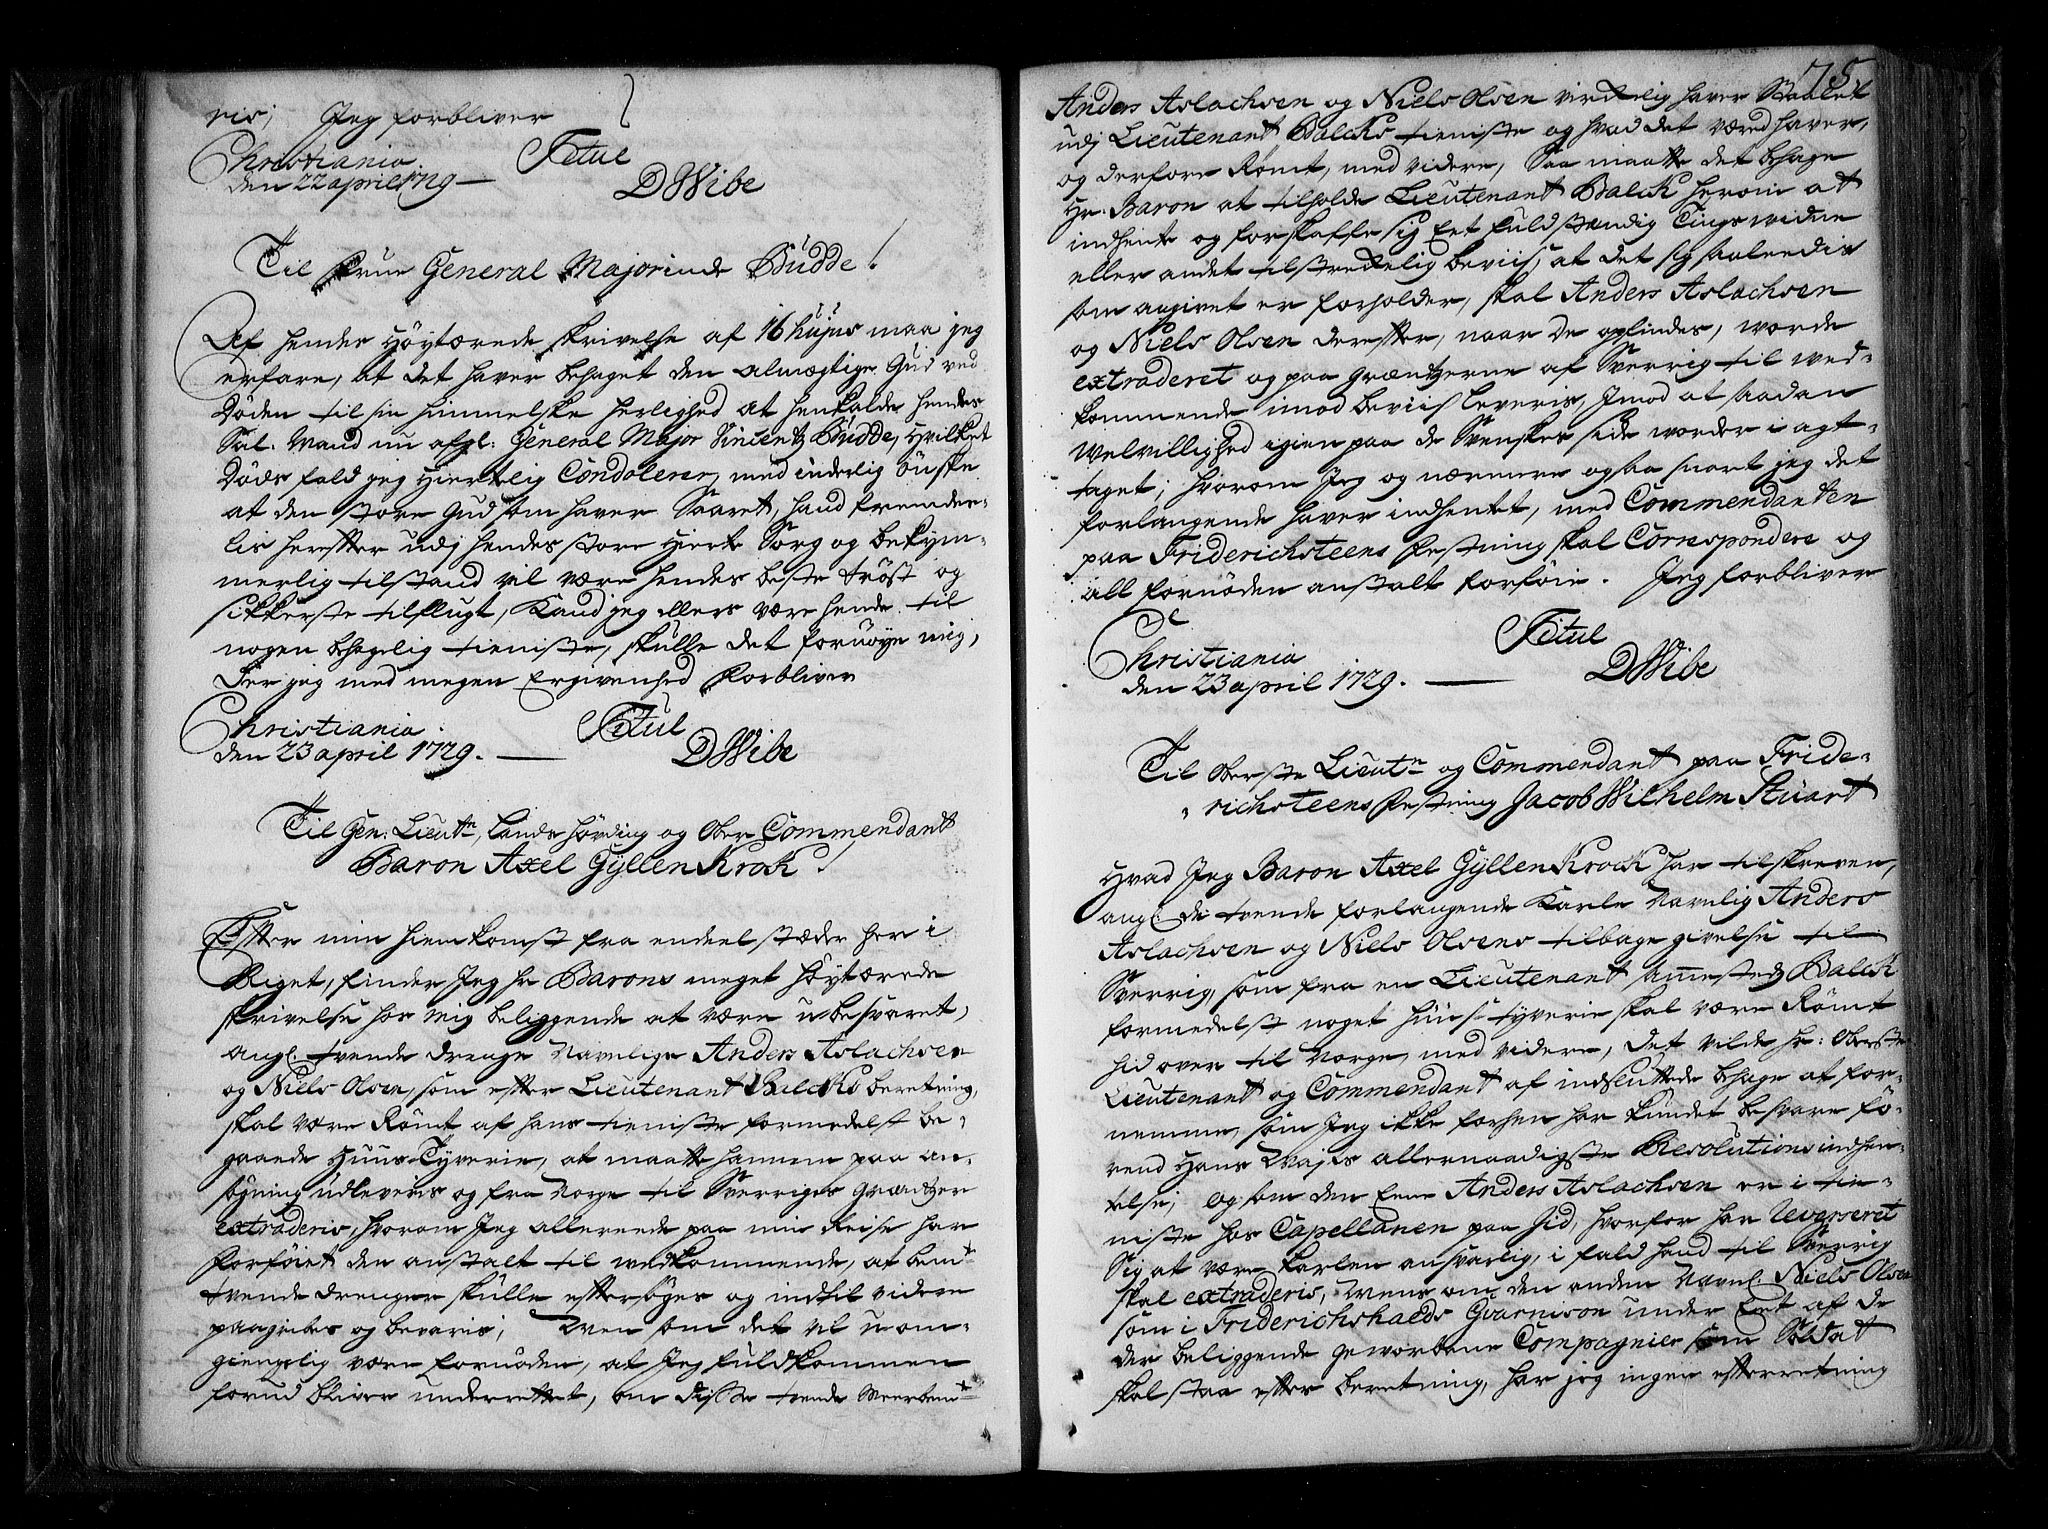 ris; Jeg forbliver
Christiania Titul
den 22 april 1729 — DWibe
Til Frue General Majorinde Budde!
Af hendes Høytærede skrivelse af 16 hujus maa jeg
erfare, at det haver behaget den almægtige Gud ved
Døden til sin himmelske herlighed at henkalde hendes
Sal. Mand nu afgl: General Major Vincentz Budde, hvilket
Døds fald jeg Hiertelig Condolerer, med inderlig ønske
at den store Gud som haver Saaret, hand fremde-
lis herefter udj hendes store Hierte Sorg og bekym-
merlig tilstand vil være hendes beste trøst og
sikkerste tilflugt, Kand jeg ellers være hende til
nogen behagelig tieniste, skulle det fornøye mig,
Der jeg med megen Ergivenhed Forbliver
Christiania Titul
den 23 april 1729. — DWibe
Til Gen: Lieutn, Landshøvding og Ober Commendant
Baron Axel Gyllen Krok!
Efter min hiemkomst fra endeel stæder her i
Riget, finder Jeg hr Barons meget høytærede
skrivelse hos mig beliggende at være ubesvaret,
angl. tvende drenge Navnlige Anders Aslachsen
og Niels Olsen, som efter Lieutenant Balcks beretning,
skal være Rømt af hans tieniste formedelst be-
gaaede Huus-Tyverie, at maatte hannem paa an-
søgning udleveris og fra Norge til Sverriges Grændtzer
extraderis, hvorom Jeg allereede paa min Reise har
forføiet den anstalt til wedkommende, at bemte
tvende drenger skulle eftersøges og indtil videre
paagribes og bevaris; Men som det vil uom-
giengelig være fornøden, at Jeg fuldkommen
forud bliver underrettet, om disse tvende Meerbemte
75.
Anders Aslachsen og Niels Olsen virkelig haver Staalet
udj Lieutenant Balcks tieniste og hvad det værd haver,
og derfore Rømt, med videre, Saa maatte det behage
Hr: Baron at tilholde Lieutenant Balck herom at
indhente og forskaffe sig Eet fuldstændig Tingswidne
eller andet tilstrekkelig beviis, at det sig saaleedis
som angivet er forholder, skal Anders Aslachsen
og Niels Olsen derefter, naar de opfindes, worde
extraderet og paa Grændtzerne af Sverrig til wed-
kommende imod beviis leveris, Imod at saadan
Welvillighed igien paa de Svenskes side worder i agt-
taget; hvorom Jeg og nærmere og saa snart jeg det
forlangende haver indhentet, med Commendanten
paa Friderichsteens Festning skal Correspondere og
all fornøden anstalt forføie. Jeg forbliver
Christiania Titul
den 23 april 1729. — DWibe
Til Oberste Lieutn og Commendant paa Fride-
richsteens Festning Jacob Wilhelm Stuart
Hvad Jeg Baron Axel Gyllen Krock har tilskreven,
angl: de tvende forlangende Karle Navnlig Anders
Aslachsen og Niels Olsens tilbage givelse til
Sverrig, som fra en Lieutenant sammesteds Balck
formedelst noget huus-tyverie skal være Rømt
hid over til Norge, med videre, det vilde hr: Oberste
Lieutenant og Commendant af indsluttede behage at for-
nemme, som Jeg ikke forhen har kundet besvare fø-
rend Hans Mayts allernaadigste Resolutions indhen-
telse; og som den Eene Anders Aslachsen er i tie-
niste hos Capellanen paa Jid, hvorfor han Reverseret
Sig at være Karlen ansvarlig, i fald hand til Sverrig
skal extraderis, Mens om den anden Navnl. Niels Olsen
som i Friderichshalds Guarnison under Eet af de
der beliggende geworbene Compagnier som Soldat
skal staa efter beretning, har jeg ingen efterretning